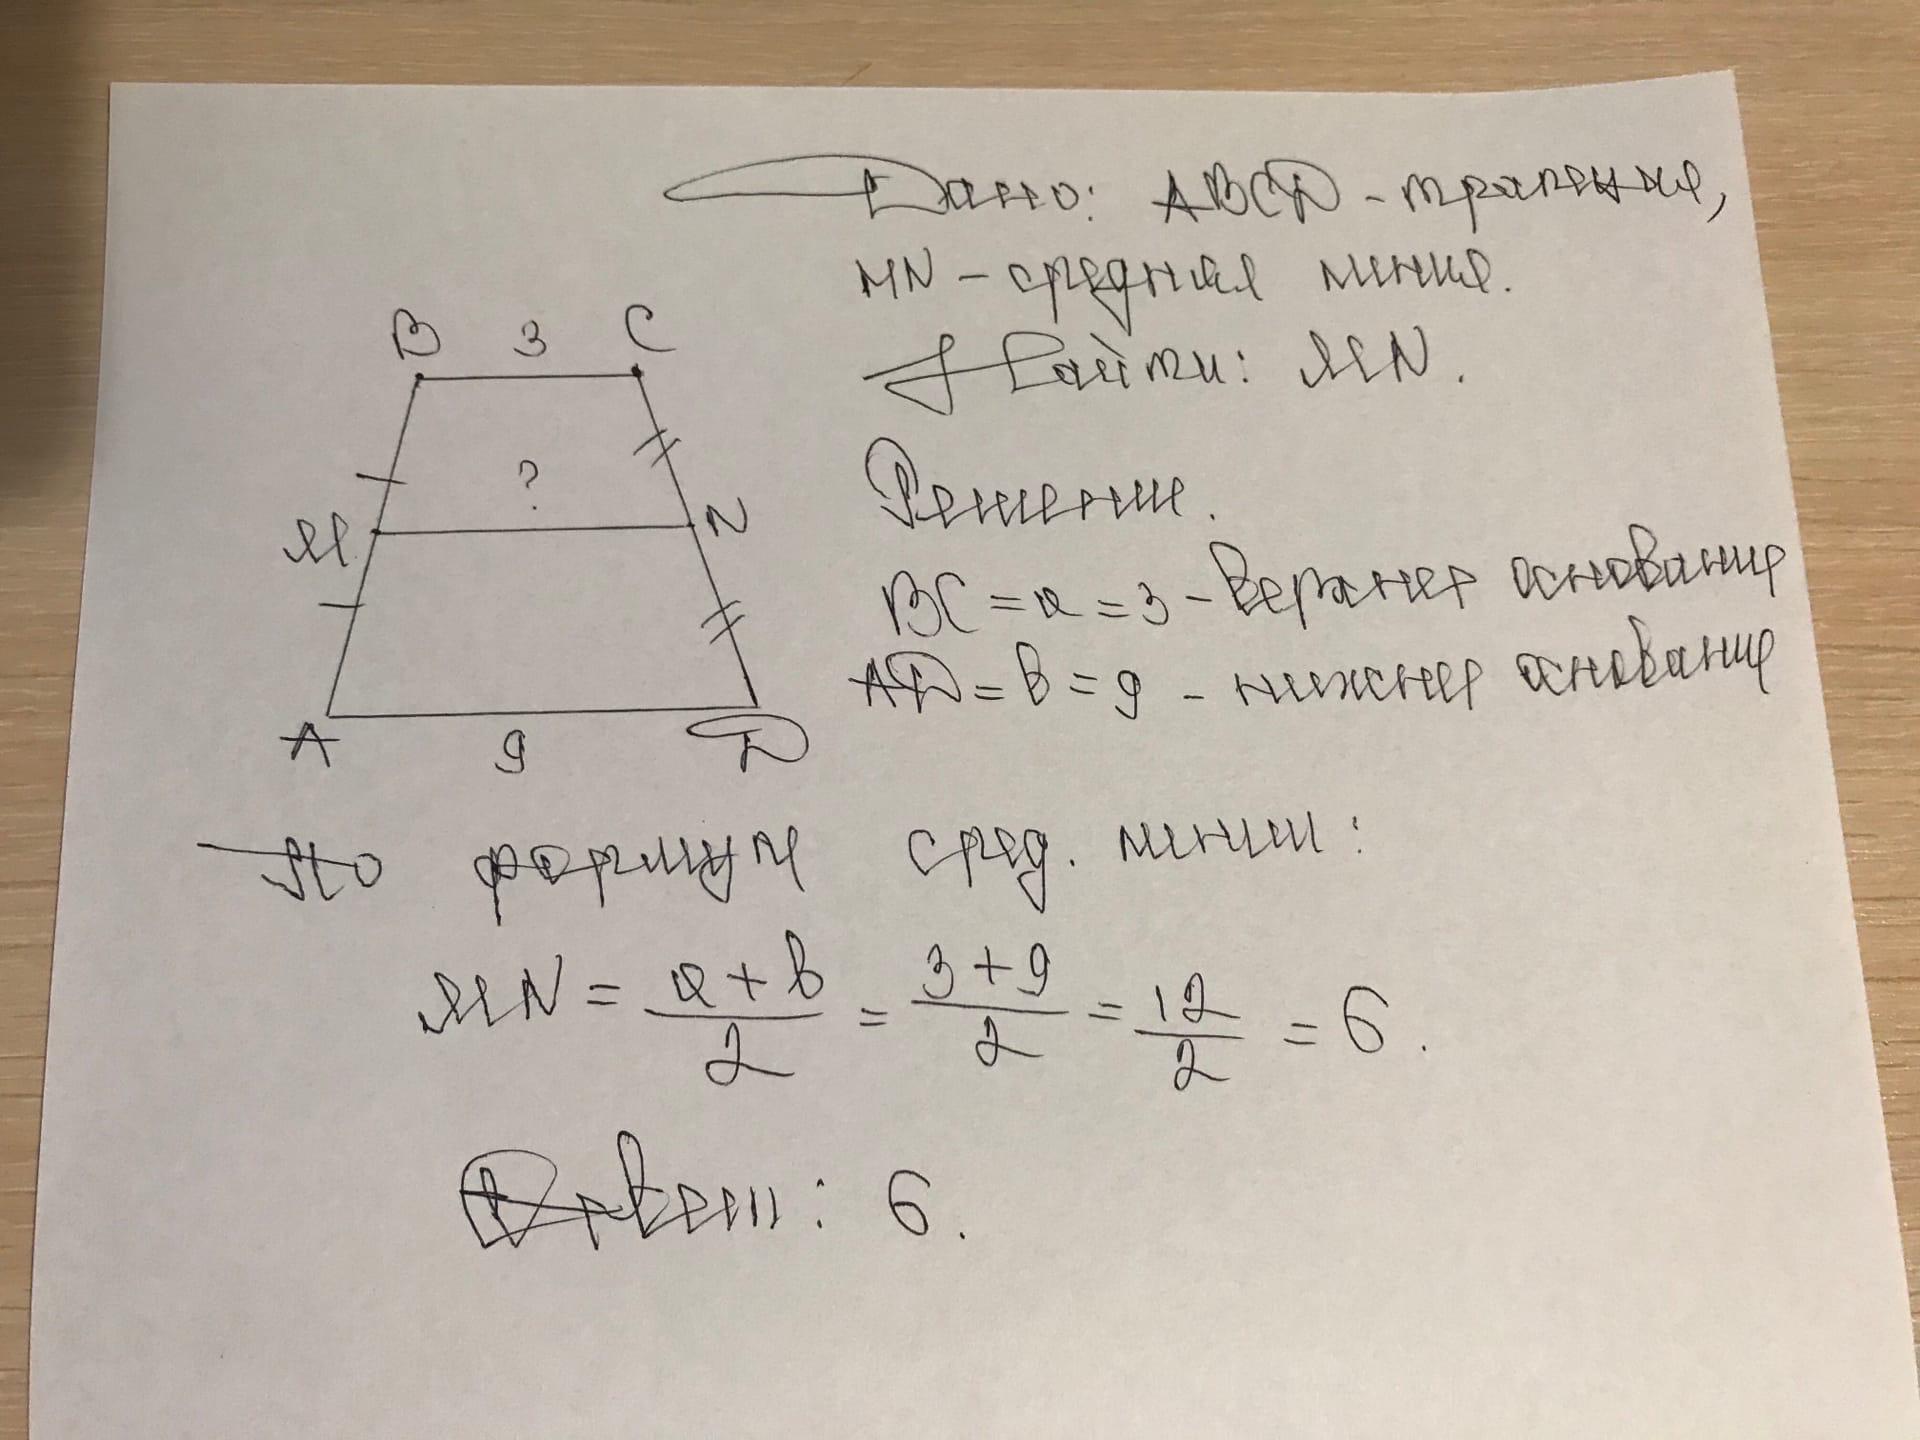 Дано: ABCD - трапеция,
MN - средняя линия.
Найти: MN.
B 3 C
Решение.
?
M N
BC = a = 3 - верхнее основание
AD = b = 9 - нижнее основание
A 9 D
По формуле сред. линии:
MN = a + b / 2 = 3 + 9 / 2 = 12 / 2 = 6.
Ответ: 6.